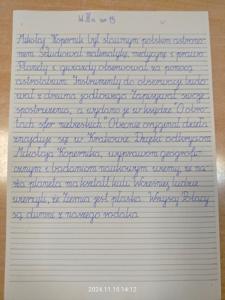 Mikołaj Kopernik był sławnym polskim astrono-
mem. Studiował matematykę, medycynę i prawo.
Planety i gwiazdy obserwował za pomocą
astrolabium. Instrumenty do obserwacji budo-
wał z drewna jodłowego. Zapisywał swoje
spostrzeżenia, a wydano je w księdze "O obro-
tach sfer niebieskich". Obecnie oryginał dzieła
znajduje się w Krakowie. Dzięki odkryciom
Mikołaja Kopernika, wyprawom geografi-
cznym i badaniom naukowym wiemy, że na-
sza planeta ma kształt kuli. Wcześniej ludzie
wierzyli, że Ziemia jest płaska. Wszyscy Polacy
są dumni z naszego rodaka.
2024.11.15 14:12